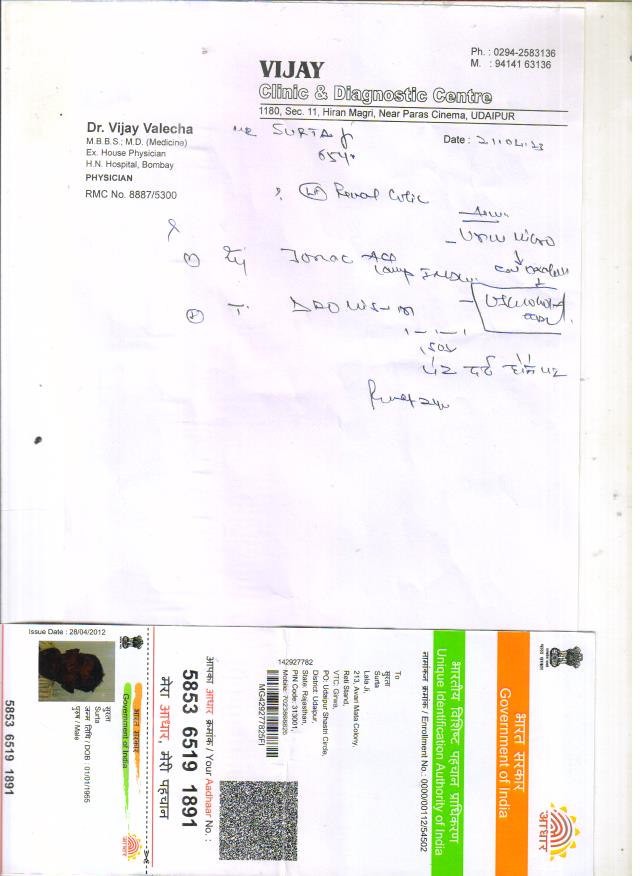 Ph. : 0294-2583136
M. : 94141 63136
VIJAY
Clinic & Diagnostic Centre
1180, Sec. 11, Hiran Magri, Near Paras Cinema, UDAIPUR
Dr. Vijay Valecha
M.B.B.S.; M.D. (Medicine)
Ex. House Physician
H.N. Hospital, Bombay
PHYSICIAN
RMC No. 8887/5300
MR SURTA Ji
Date : 21.04.23
Renal Colic
दर्द होने पर
भारत सरकार
Government of India
भारतीय विशिष्ट पहचान प्राधिकरण
Unique Identification Authority of India
नामांकन क्रमांक / Enrollment No.: 0000/00112/54502
To
सुरता
Surta
Lala Ji,
213, Avari Mata Colony,
Reti Stand,
VTC: Girwa,
PO: Udaipur Shastri Circle,
District: Udaipur,
State: Rajasthan,
PIN Code: 313001,
142927782
MG429277825FI
आपका आधार क्रमांक / Your Aadhaar No. :
5853 6519 1891
मेरा आधार, मेरी पहचान
Issue Date : 28/04/2012
भारत सरकार
Government of India
सुरता
Surta
जन्म तिथि / DOB : 01/01/1965
पुरुष / Male
5853 6519 1891
आधार